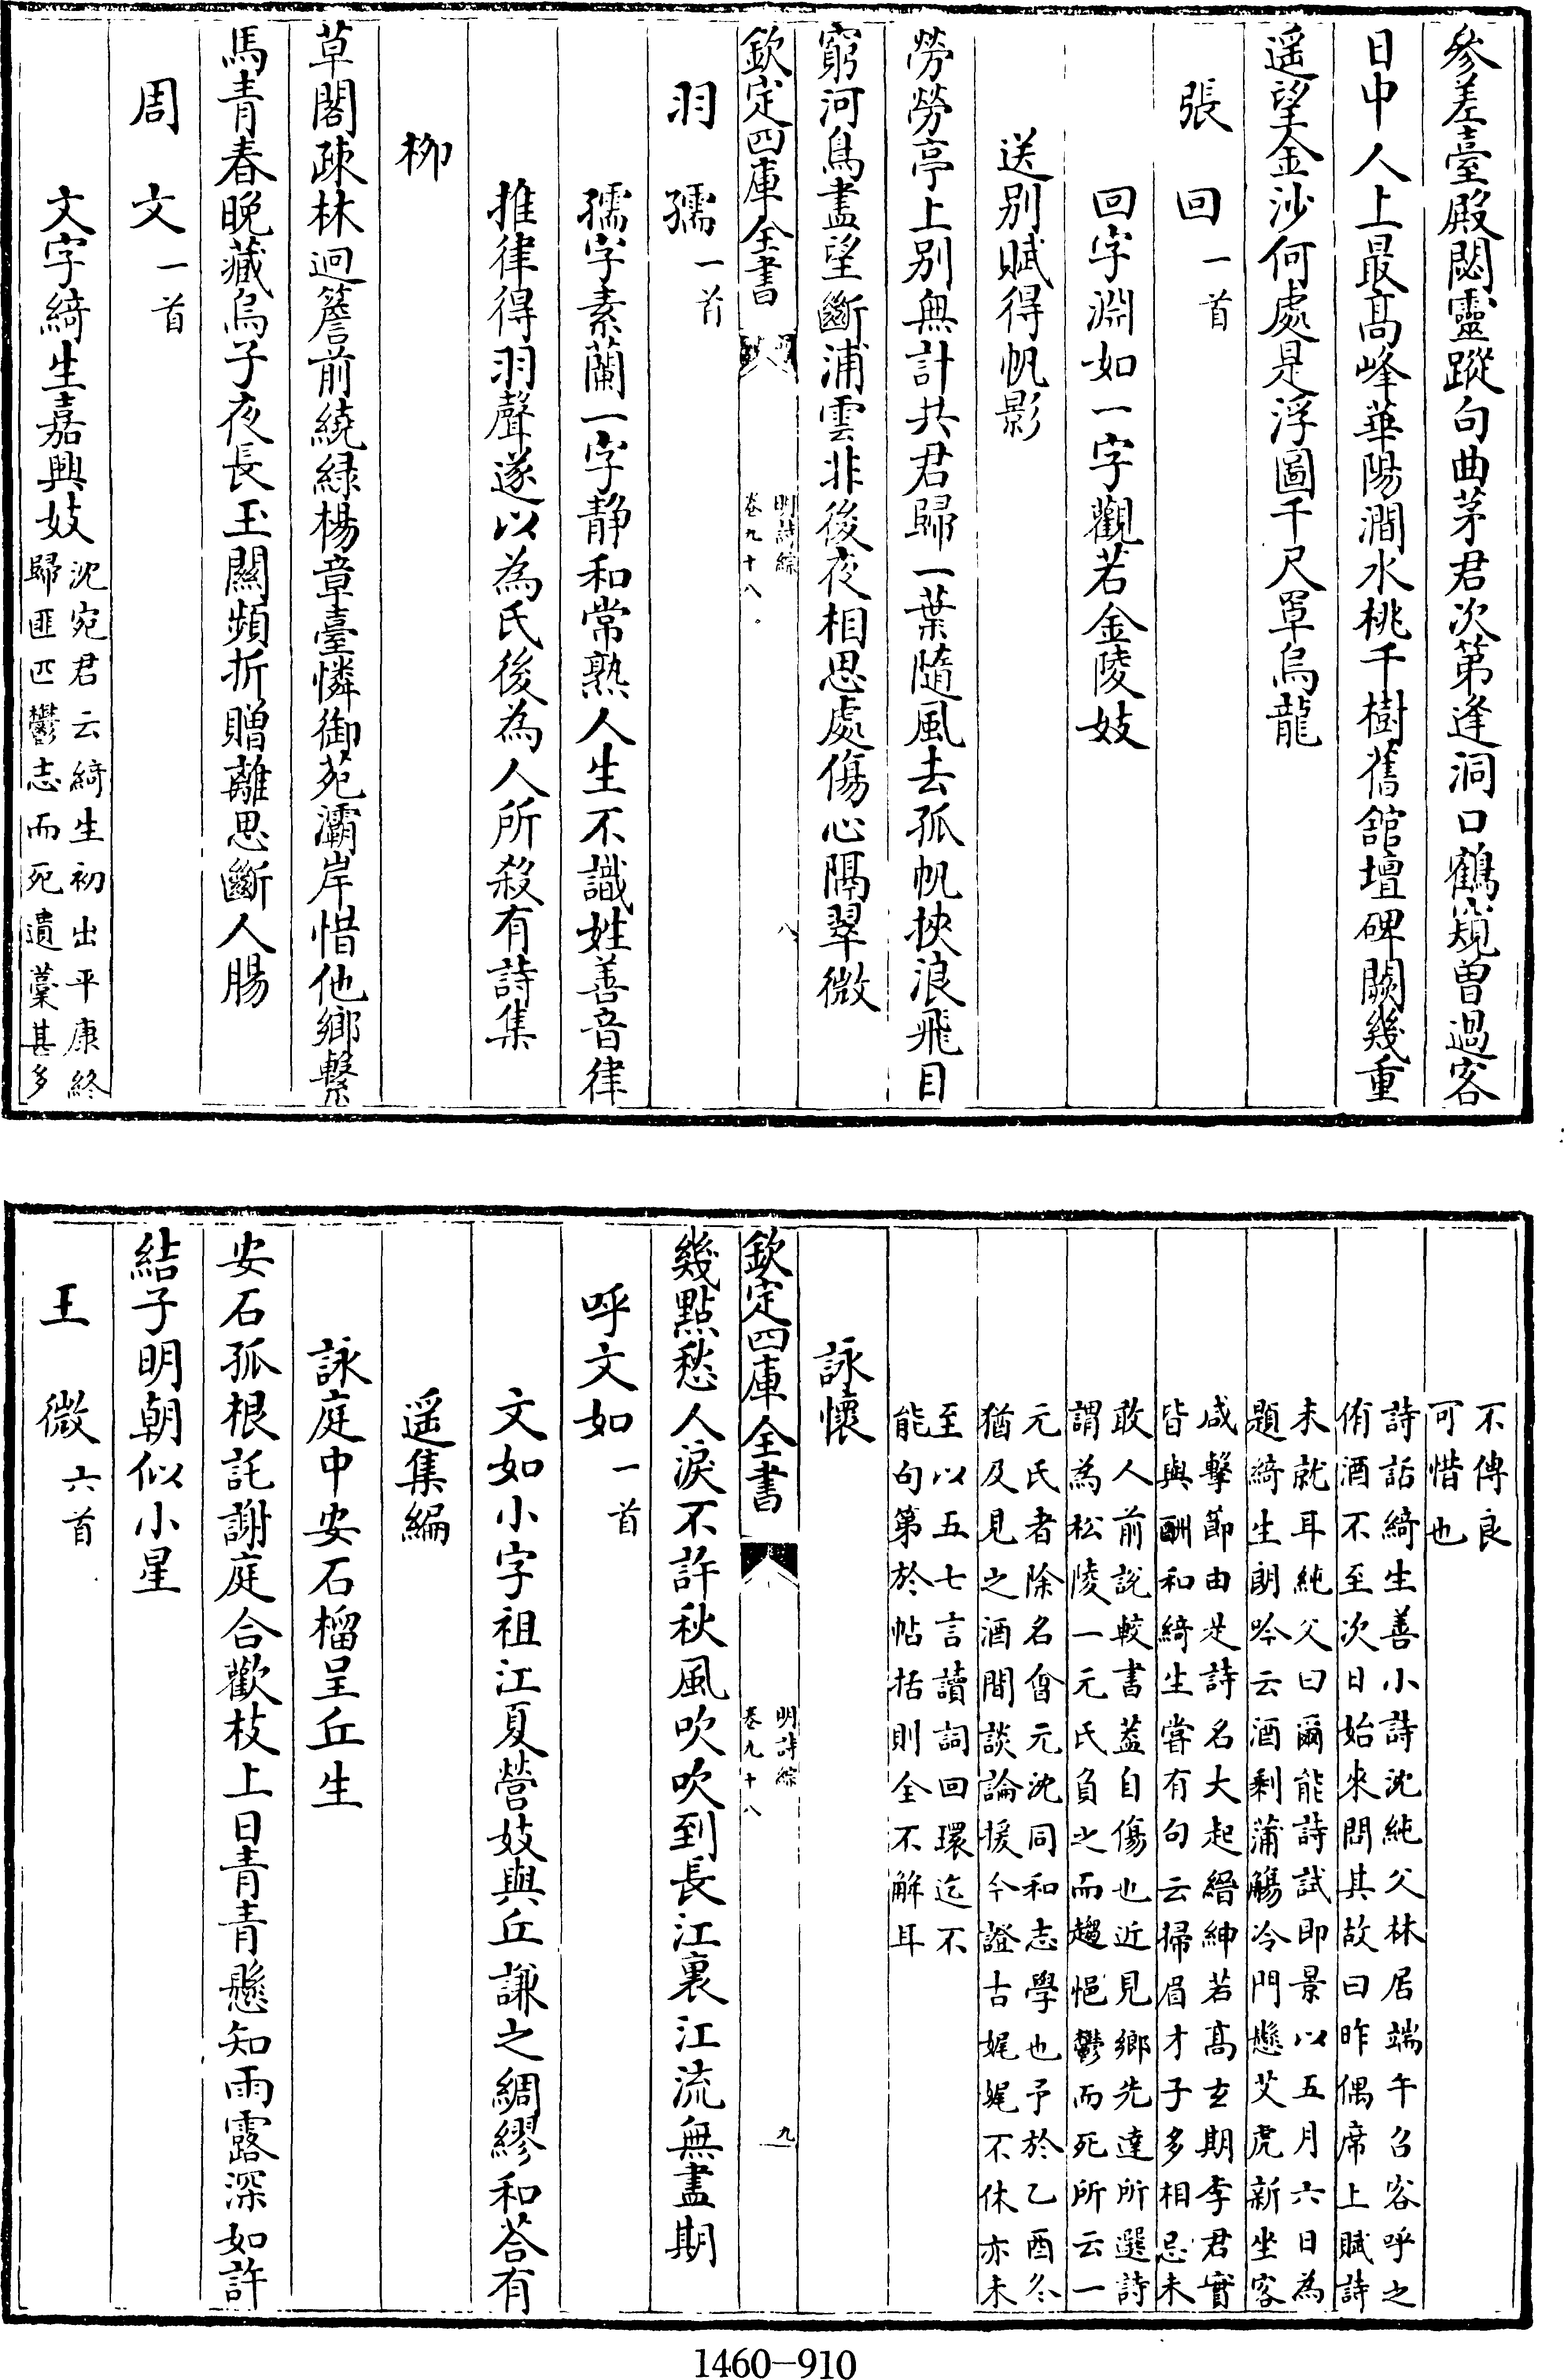 參差臺殿閟靈蹤句曲茅君次第逢洞口鶴窺曽過客
日中人上最髙峰華陽澗水桃千樹舊舘壇碑闕幾重
遥望金沙何處是浮圖千尺罩烏龍
張回一首
回字淵如一字觀若金陵妓
送别賦得帆影
勞勞亭上别無計共君歸一葉隨風去孤帆挾浪飛目
窮河鳥盡望斷浦雲非後夜相思處傷心隔翠微
欽定四庫全書
明詩綜
卷九十八
八
羽孺一首
孺字素蘭一字静和常熟人生不識姓善音律
推律得羽聲遂以為氏後為人所殺有詩集
栁
草閣疎林迥簷前繞緑楊章臺憐御苑灞岸惜他鄉繫
馬青春晚藏烏子夜長玉關頻折贈離思斷人腸
周文一首
文字綺生嘉興妓
沈宛君云綺生初出平康終
歸匪匹鬱志而死遺藁甚多
不傳良
可惜也
詩話綺生善小詩沈純父林居端午召客呼之
侑酒不至次日始來問其故曰昨偶席上賦詩
未就耳純父曰爾能詩試即景以五月六日為
題綺生朗吟云酒剩蒲觴冷門懸艾虎新坐客
咸擊節由是詩名大起縉紳若髙𤣥期李君實
皆與酬和綺生嘗有句云掃眉才子多相忌未
敢人前説較書葢自傷也近見鄉先達所選詩
謂為松陵一元氏負之而趨悒鬱而死所云一
元氏者除名㑹元沈同和志學也予於乙酉冬
猶及見之酒間談論援今證古娓娓不休亦未
至以五七言讀詞回環迄不
能句第於帖括則全不解耳
詠懐
欽定四庫全書
明詩綜
卷九十八
九
幾點愁人淚不許秋風吹吹到長江裏江流無盡期
呼文如一首
文如小字祖江夏營妓與丘謙之綢繆和荅有
遥集編
詠庭中安石榴呈丘生
安石孤根託謝庭合歡枝上日青青懸知雨露深如許
結子明朝似小星
王微六首
1460-910